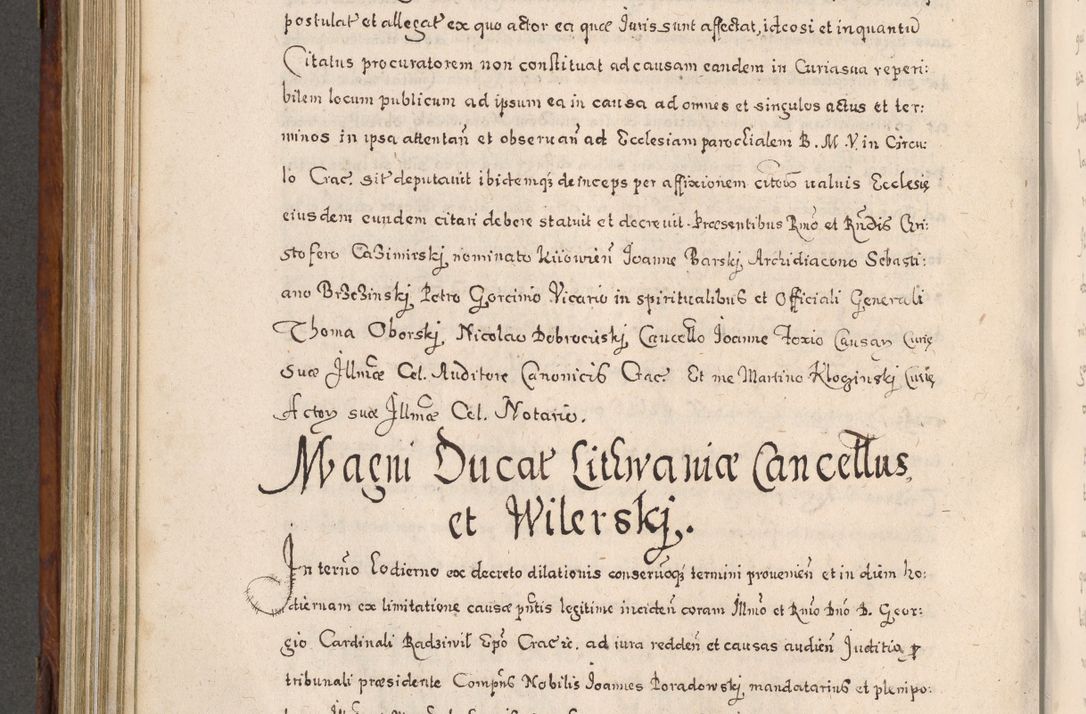 postulat et allegat ex quo actor ea quæ Juris sunt affectat, ideosi et inquantũ
Citatus procuratorem non constituat ad causam eandem in Curia sua reperi:
bilem locum publicum ad ipsum ea in causa ad omnes et singulos actus et ter:
minos in ipsa attentañ et obseruañ ad Ecclesiam parochialem B. M. V. in Circu:
lo Crac. sit deputauit ibidemqż deinceps per affixionem ualuis Ecclesię
eiusdem eundem citari debere statuit et decreuit. Præsentibus Rmo et Rndis Chri:
stofero Cazimirskj nominato Kiiowień Joanne Barskj, Archidiacono Sebasti:
ano Brzezinskj Petro Gorcinio Vicario in spiritualibus et Officiali Generali
Thoma Oborskj, Nicolao Dobrociskj, Cancello Joanne Foxio Causar Curię
suæ Jllmæ Cel. Auditore Canonicis Crac. Et me Martino Kloczinskj Curię
Actor suæ Jllmæ Cel. Notario.
Magni Ducat Lithwaniæ Cancellus
et Wilerskj.
Jn termo hodierno ex decreto dilationis conseruoqż termini proueniẽ et in diem ho:
diernam ex limitatione causæ pñtis legitime incideñ coram Jllmo et Rmo Dño D. Geor:
gio Cardinali Radziwil Epo Crac ac. ad iura reddeñ et causas audieñ Juditia p
tribunali præsidente Compñs Nobilis Joannes Poradowskj, mandatarius et plenipo: